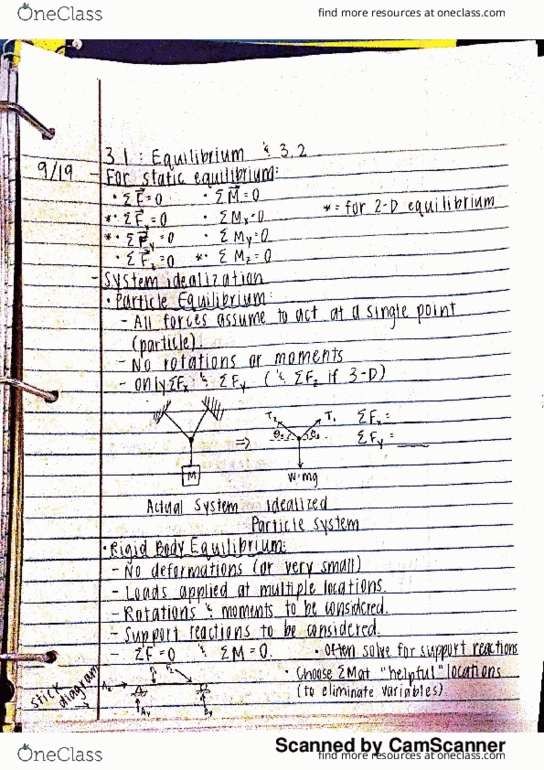 OneClass
find more resources at oneclass.com
3.1: Equilibrium & 3.2
9/19 - For static equilibrium:
• ΣF⃗=0 • ΣM⃗=0
*• ΣF⃗x=0 • ΣMx=0 *= for 2-D equilibrium
*• ΣF⃗y=0 • ΣMy=0
• ΣF⃗z=0 *• ΣMz=0
- System idealization
• Particle Equilibrium:
- All forces assume to act at a single point
(particle).
- No rotations or moments
- only ΣFx & ΣFy (& ΣFz if 3-D)
T₂ T₁ ΣFx =
θ₂ θ₁ ΣFy =
⇒
M
W=mg
Actual System idealized
Particle system
• Rigid Body Equilibrium:
- No deformations (or very small)
- Loads applied at multiple locations.
- Rotations & moments to be considered.
- Support reactions to be considered.
- ΣF=0 & ΣM=0. • often solve for support reactions
• Choose ΣM at "helpful" locations
(to eliminate variables)
stick diagram
Ax
Ay By
Scanned by CamScanner
OneClass
find more resources at oneclass.com